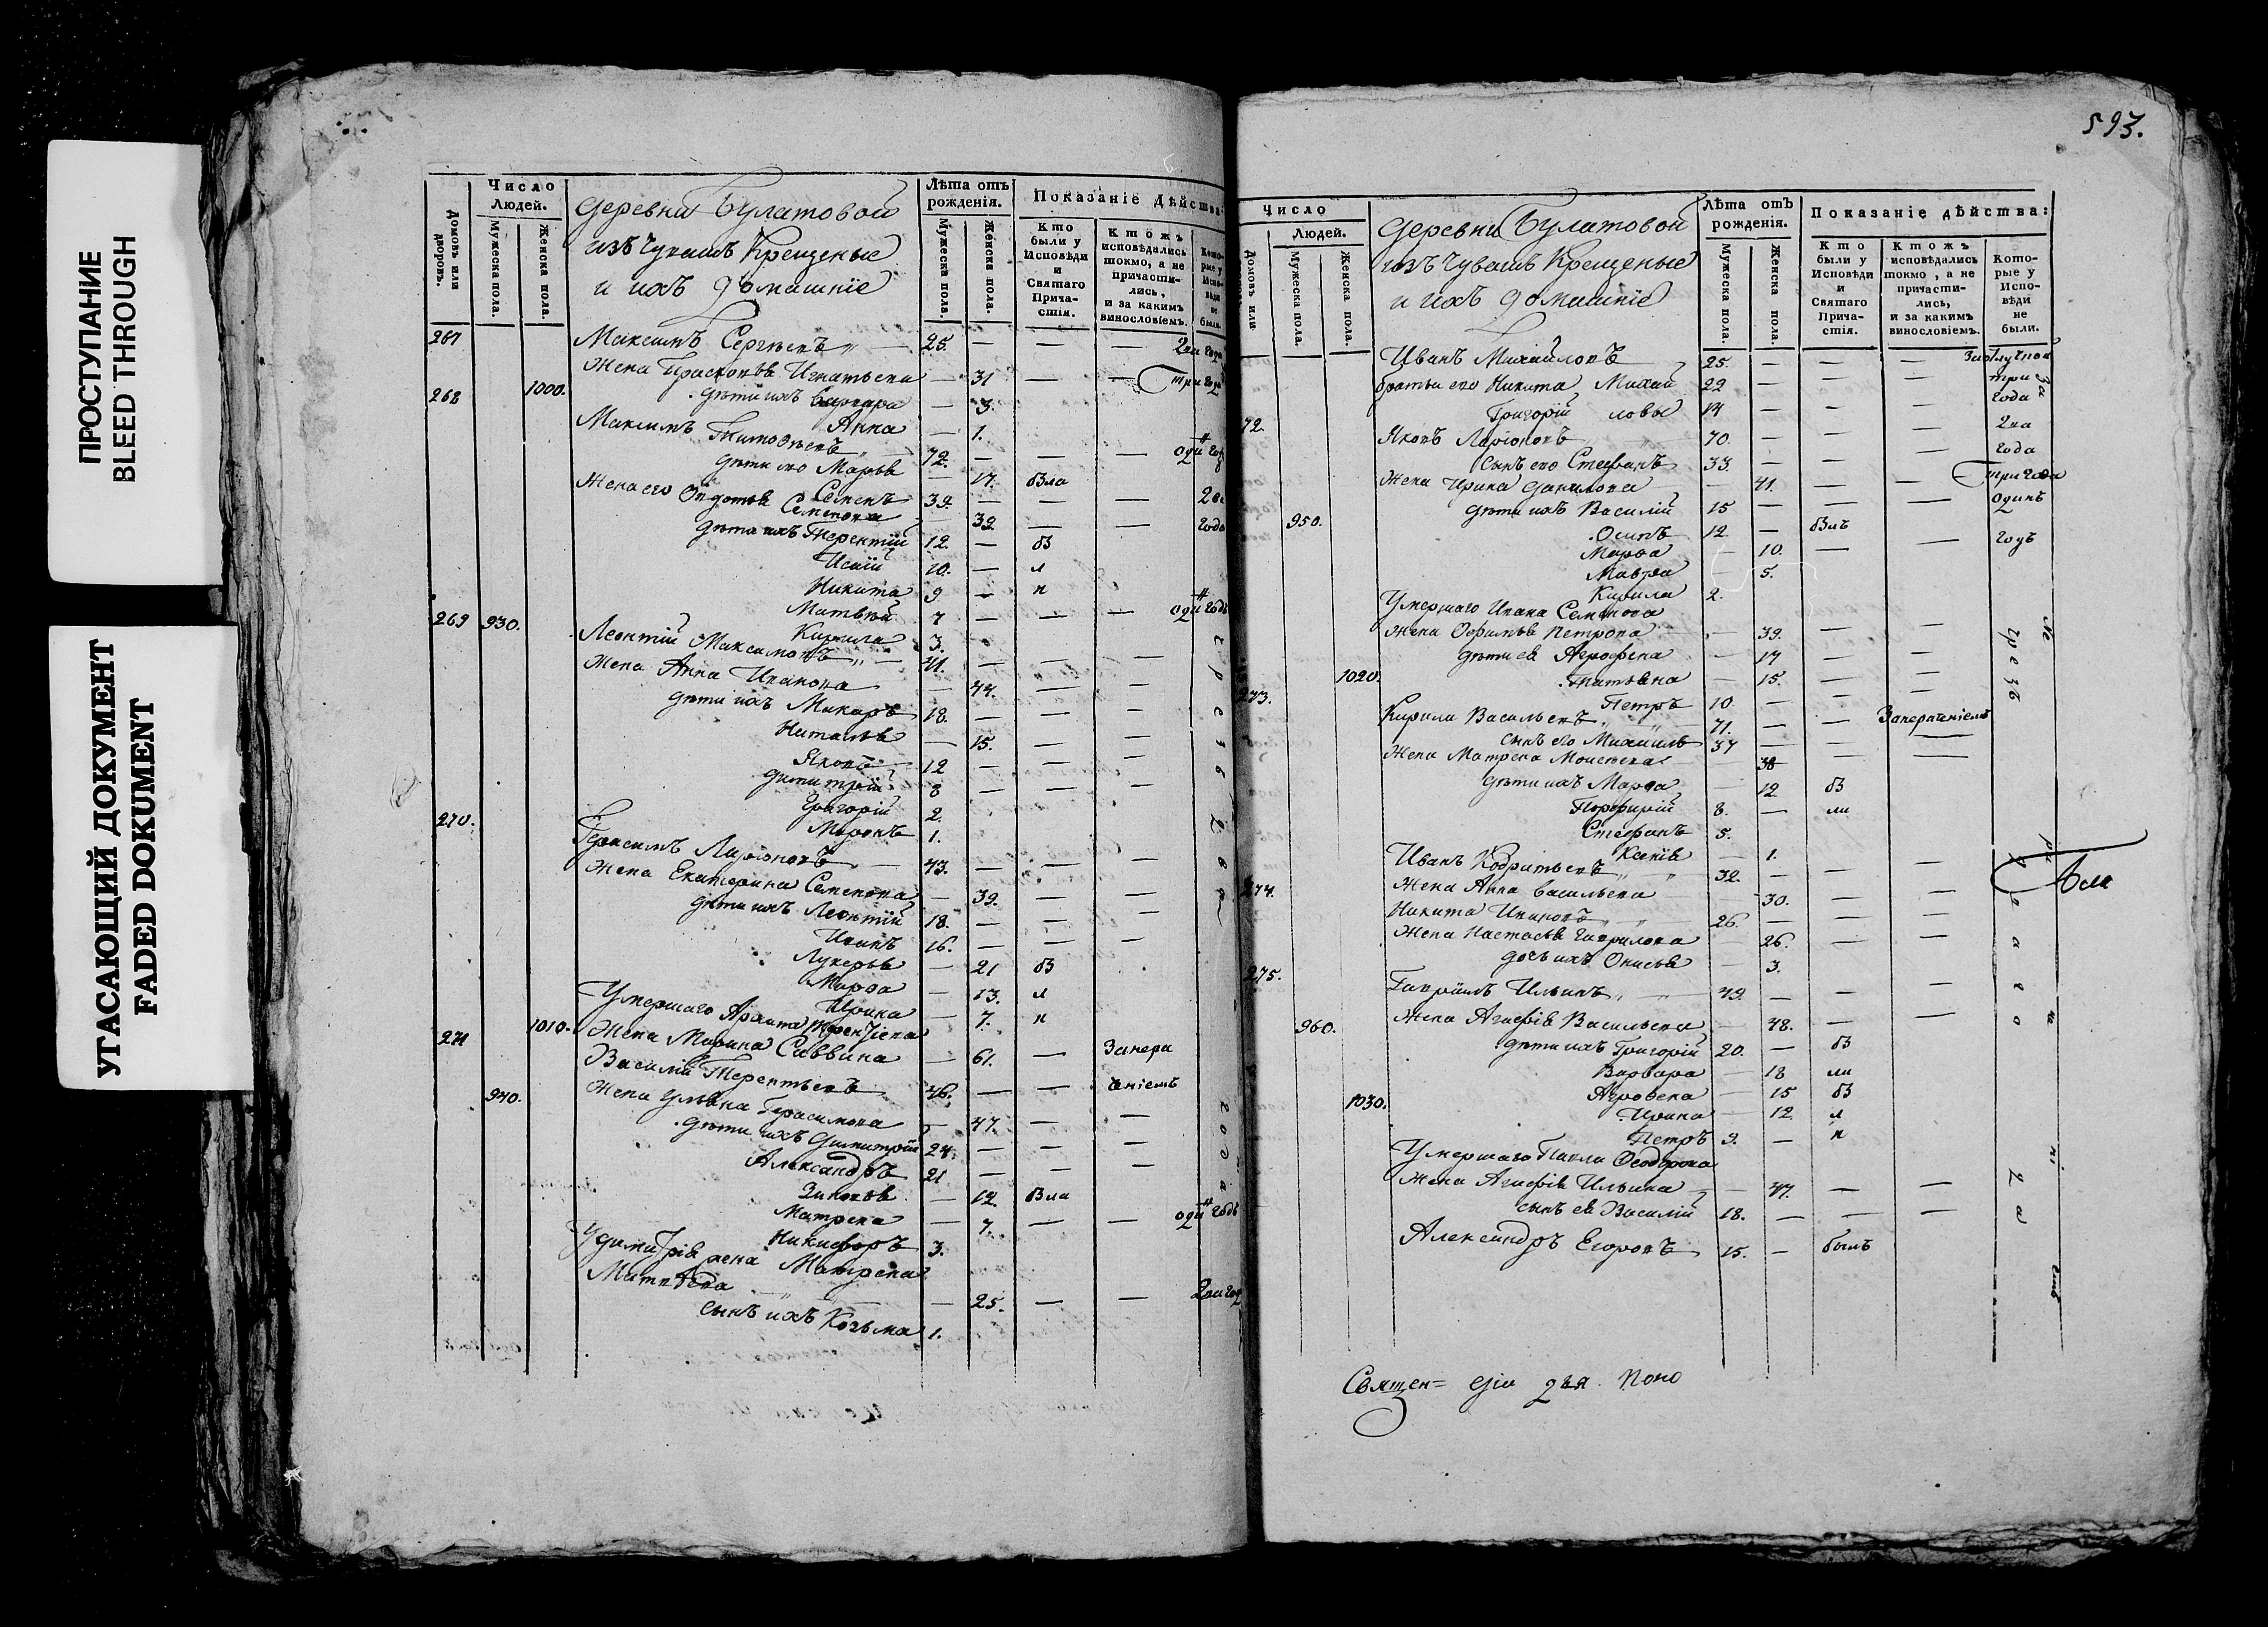 ПРОСТУПАНИЕ
BLEED THROUGH
УГАСАЮЩИЙ ДОКУМЕНТ
FADED DOKUMENT
Число Людей.
Домовъ или дворовъ.
Мужеска пола.
Женска пола.
Деревни Булатовой
изъ Чувашъ Крещеные
и ихъ домашніе
Лѣта отъ рожденія.
Мужеска пола.
Женска пола.
Показаніе Дѣйства
Кто были у Исповѣди и Святаго Причастія.
Ктожъ исповѣдались токмо, а не причастились, и за какимъ винословіемъ.
Которые у Исповѣди не были.
267 Максимъ Сергѣевъ 25. — — — два года
Жена Прасковья Игнатьева — 31 — — три года
268 1000. дѣти ихъ Варвара — 3.
Анна — 1.
Максимъ Титовъ 72. — — — один год
дѣти его Марья — 17. была
Семенъ 39. — — — два
Жена его Семенова — 39. — года
дѣти ихъ Терентій 12. — бы
Исаій 10. — л
Никита 9 — и
Матвѣй 7 — — — один годъ
269 930. Кирила 3.
Леонтій Максимовъ 41. — — —
Жена Анна Иванова — 44. — —
дѣти ихъ Макаръ 18. — — —
Наталья — 15. — —
Яковъ 12 — — —
Димитрій 8 — — —
Григорій 2.
270. Миронъ 1.
Герасимъ Ларіоновъ 43. — — —
Жена Екатерина Семенова — 39. — —
дѣти ихъ Леонтій 18. — — —
Иванъ 16. — — —
Лукерья — 21 бы
Марѳа — 13. л
Ирина — 7. и
Умершаго
271 1010. Жена Марина Саввина — 61. — Занера
Василій Терентьевъ 46. — — ченіемъ
940. Жена Ульяна Герасимова — 47. — —
дѣти ихъ Димитрій 24. — — —
Александръ 21 — — —
Зиновья — 12. была
Матрена — 7. — — один годъ
Никифоръ 3.
У Димитрія жена Матрена
Матвѣева — 25. — — два год
сынъ ихъ Козьма 1.
593.
Число Людей.
Домовъ или
Мужеска пола.
Женска пола.
Деревни Булатовой
изъ Чувашъ Крещеные
и ихъ домашніе
Лѣта отъ рожденія.
Мужеска пола.
Женска пола.
Показаніе дѣйства:
Кто были у Исповѣди и Святаго Причастія.
Ктожъ исповѣдались токмо, а не причастились, и за какимъ винословіемъ.
Которые у Исповѣди не были.
Иванъ Михайловъ 25. — — —
братья его Никита Михай 22 — — — три
Григорій ловы 14 — — — года
72. Яковъ Ларіоновъ 70. — — — два
сынъ его Стефанъ 33. — — — года
Жена Ирина Данилова — 41. — — три года
950. дѣти ихъ Василій 15 — — — одинъ
Осипъ 12. — былъ годъ
Марѳа — 10. — —
Мавра — 5.
Кирила 2.
Умершаго Ивана Семенова
Жена Петрова — 39. — —
дѣти ея Агрофена — 17 — —
1020. Татьяна — 15. — —
273. Петръ 10. — — —
Кирила Васильевъ 71. — —
сынъ его Михаилъ 37 — — —
Жена Матрена Моисеева — 38 — —
дѣти ихъ Марѳа — 12 бы
Порфирій 8. — ли
Стефанъ 5.
Ксенія — 1.
274. Иванъ 32. — — —
Жена Анна Васильева — 30. — —
Никита Ивановъ 26. — — —
Жена Настасья Гаврилова — 26. — —
дочь ихъ Онисья — 3.
275. Гаврійлъ Ильинъ 49. — — —
960. Жена Агафія Васильева — 48. — —
дѣти ихъ Григорій 20. — бы
Варвара — 18 ли
1030. Агрофена — 15 бы
Ирина — 12 л
Петръ 9. — и
Умершаго Павла Ѳеодорова
Жена Агафія Ильина — 47. — —
сынъ ея Василій 18. — — —
Александръ Егоровъ 15. — былъ
Священ=